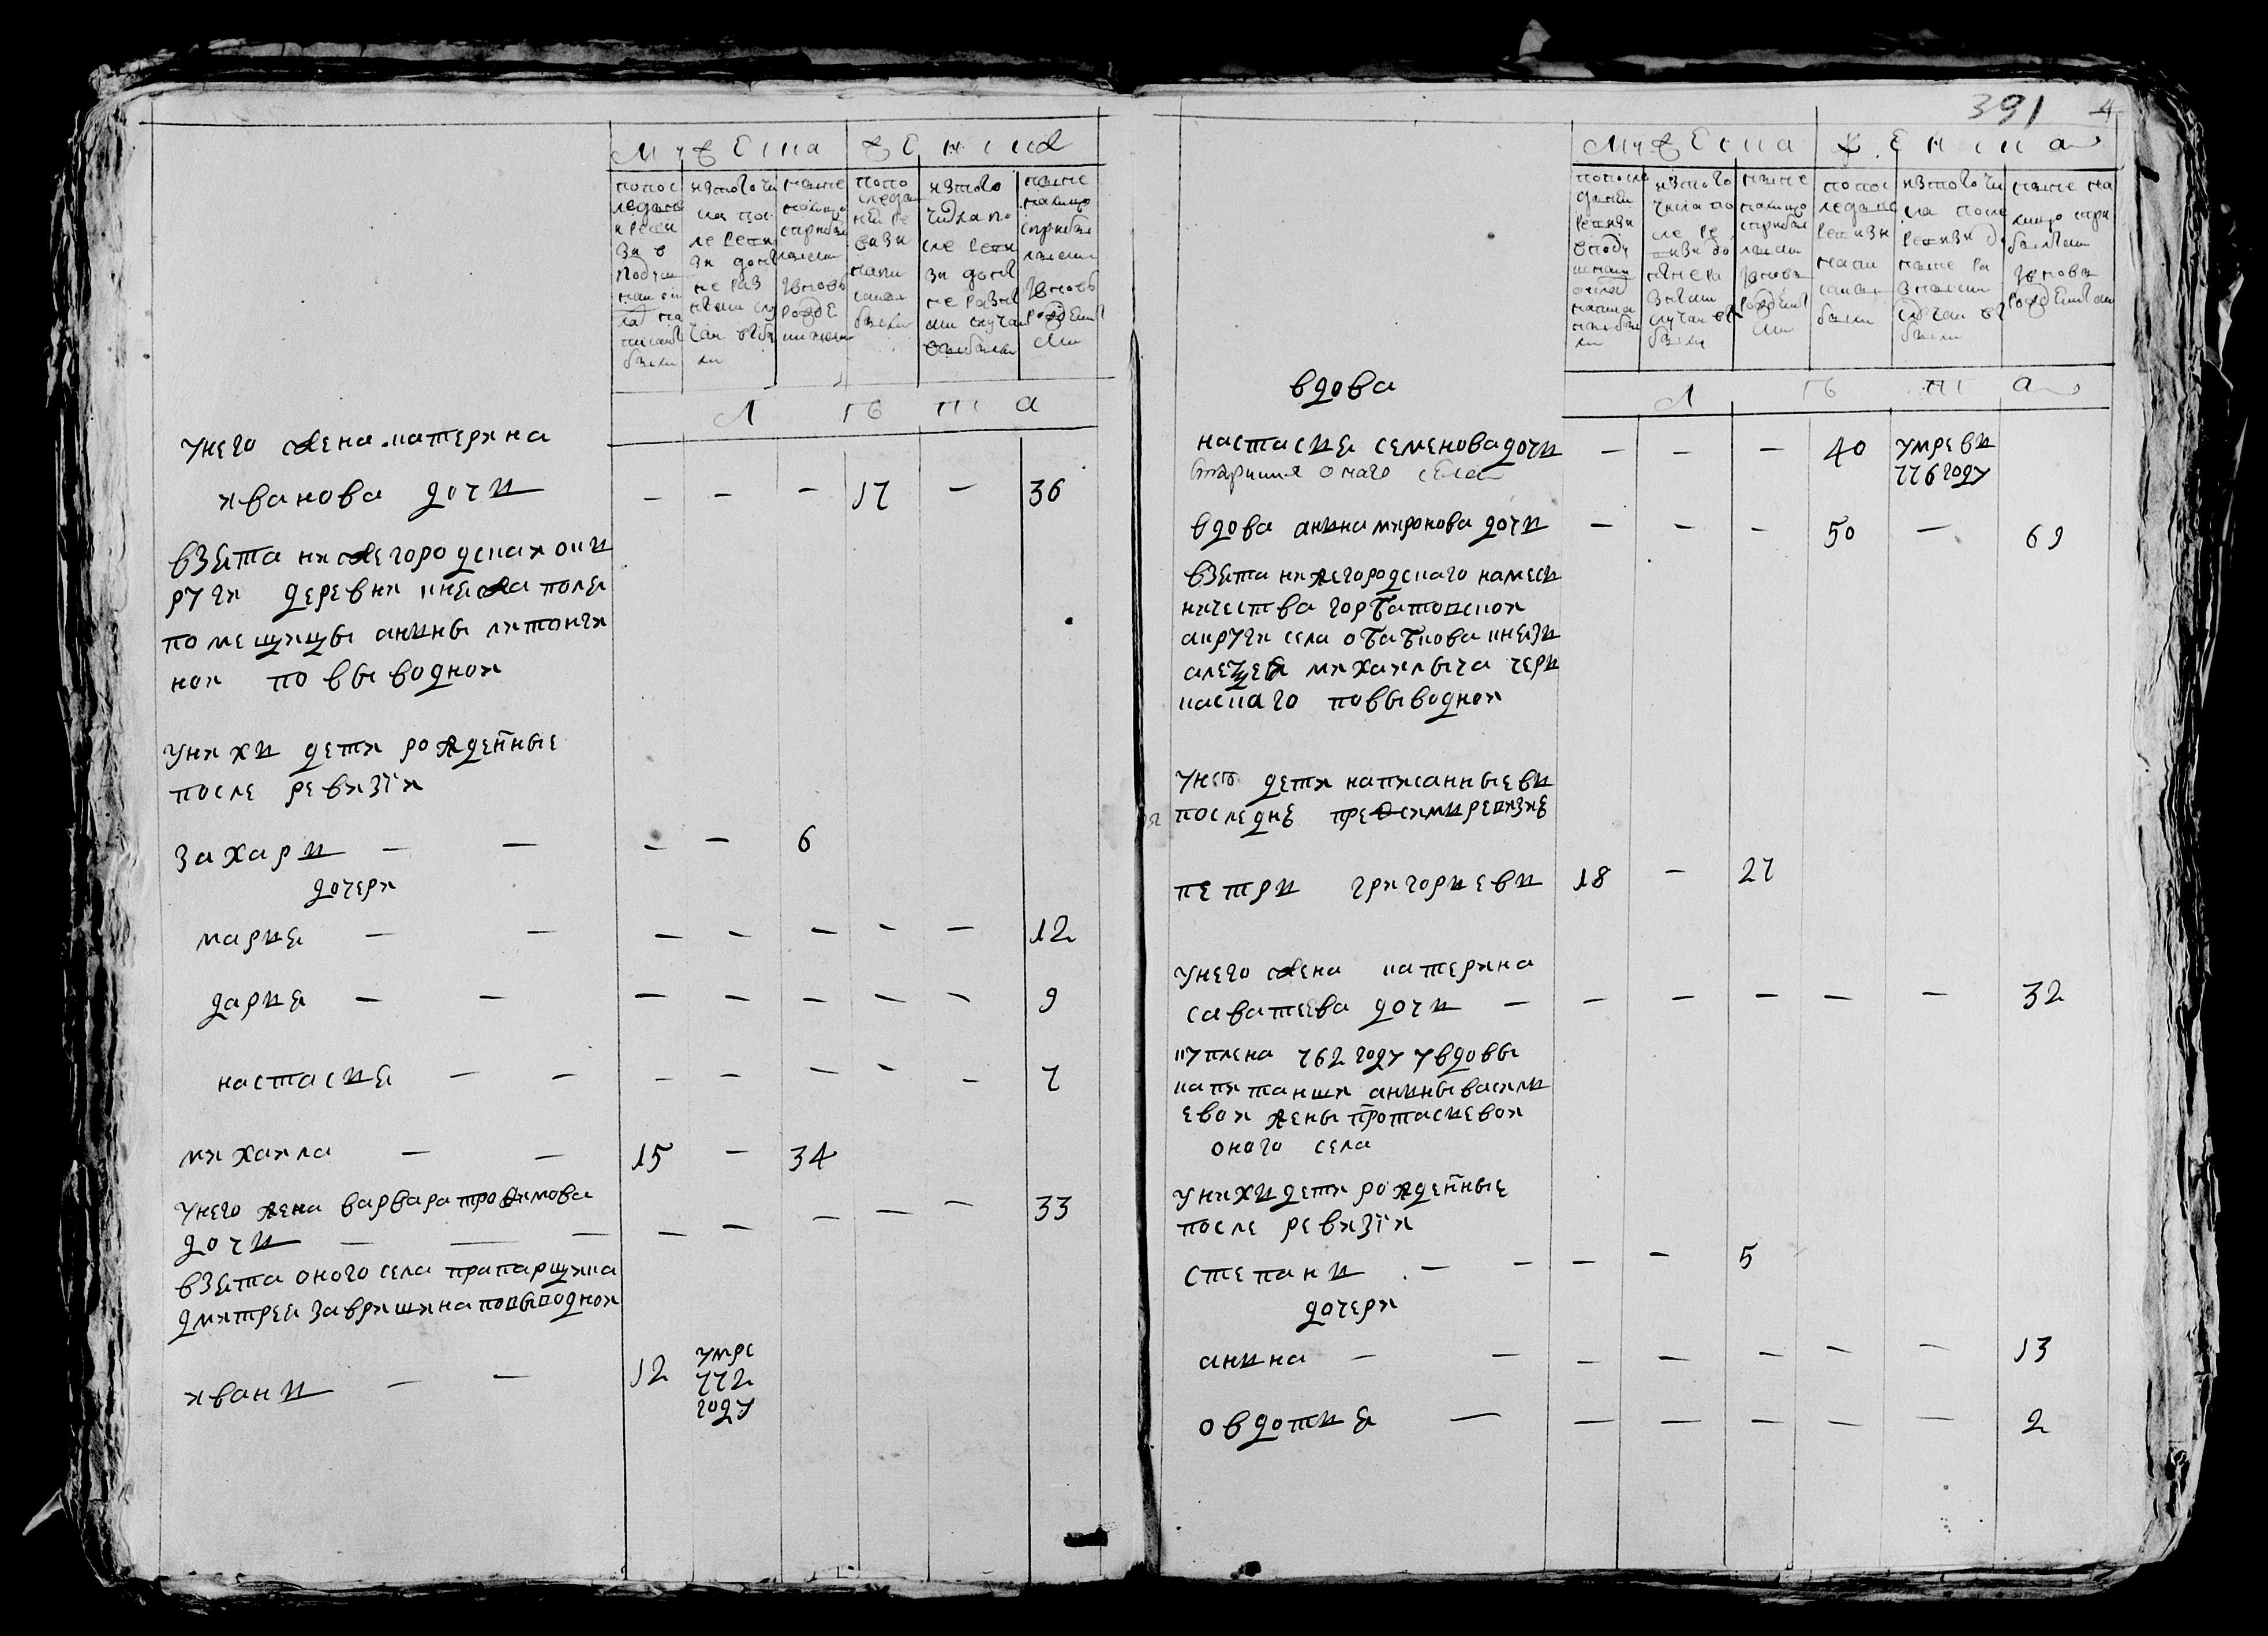 мужеска женска
попос ледьне й реви зи в подуш ном ок ла на писаны были
из того чи сла пос ле реви зи до ны не раз ными слу чаи выбы ли
ныне на лицо с прибы лыми и вновь рожде нными
по по следне й ре визи напи саны были
из того числа по сле реви зи до ны не разны ми случаи выбыли
ныне на лицо с прибы лыми и вновь рожденны ми
л ѣ т а
у него жена катерина
иванова дочь — — — 17 — 36
взята нижегородскай оки
руги деревни княжа поля
помещицы анны литонги
ной по выводной
у них дети рожденные
после ревизiи
захаръ — — — — 6
дочери
марья — — — — — — — 12
дарья — — — — — — — 9
настасья — — — — — — — 7
михаила — — 15 — 34
у него жена варвара трофимова
дочь — — — — — — — — 33
взята оного села прапарщика
дмитрея завряшина по выводной
иванъ — — 12 умре
772
году
391 4
мужеска женска
по после дней ревизи в поду шном окла написа ны бы ли
из того числа по сле ре визи до ныне ра зными случаи вы были
ныне на лицо с прибы лыми и вновь рожденны ми
по пос ледне ревизи напи саны были
из того чи сла после ревизи д ныне ра зными случаи вы были
ныне на лицо с при былыми и вновь рожденными
л ѣ т а
вдова
настасья семенова дочь — — — 40 умре въ
776 году
старинная онаго села
вдова анна миронова дочь — — — 50 — 69
взята нижегородскаго намес
ничества горбатовской
округи села абабкова князь
алецея михайлыча черъ
каскаго по выводной
у него дети написанные въ
последне пред сим ревизие
петръ григорьевъ 18 — 27
у него жена катерина
саватеева дочь — — — — — — 32
куплена 762 году у вдовы
капитанши анны василь
евой жены протасьевой
оного села
у них дети рожденные
после ревизiи
степанъ — — — — 5
дочери
анна — — — — — — — 13
овдотья — — — — — — 2